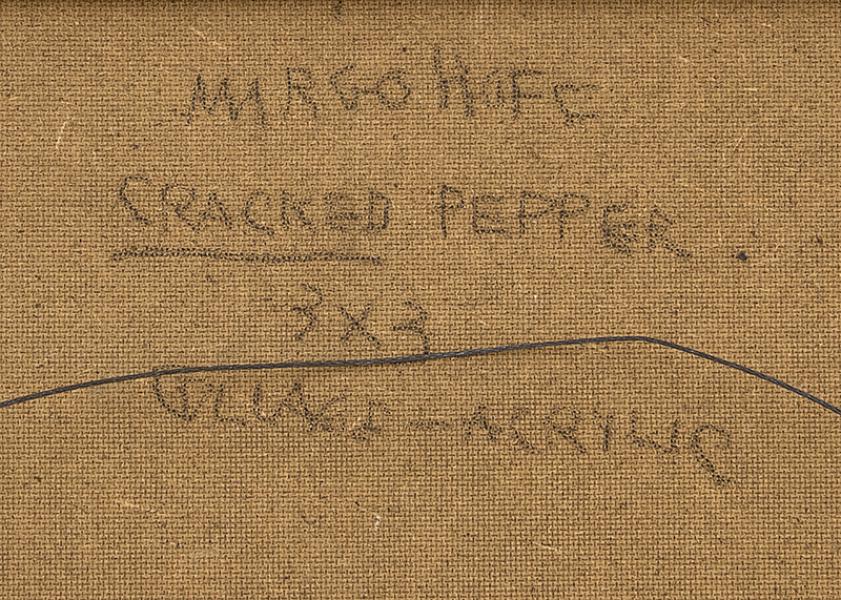 MARGO HOFF
CRACKED PEPPER.
3 X 3
COLLAGE - ACRYLIC